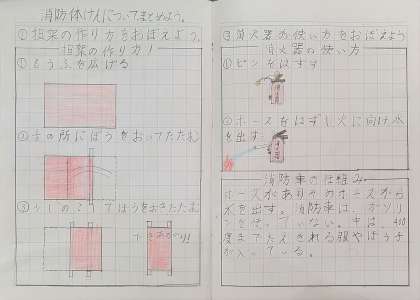 消防体けんについてまとめよう。
①担架の作り方をおぼえよう。
担架の作り方!
①もうふを広げる
②赤の所にぼうをおってたたむ
③少しのこしてぼうをおきたたむ
できあがり!!
③消火器の使い方をおぼえよう
消火器の使い方
①ピンをはずす
②ホースをはずし火に向け水を出す
消防車の仕組み
ホースがありそのホースから
水を出す。消防車は、ガソリ
ンを使っていない。中は、400
度までたえきれる服やぼうし
が入っている。